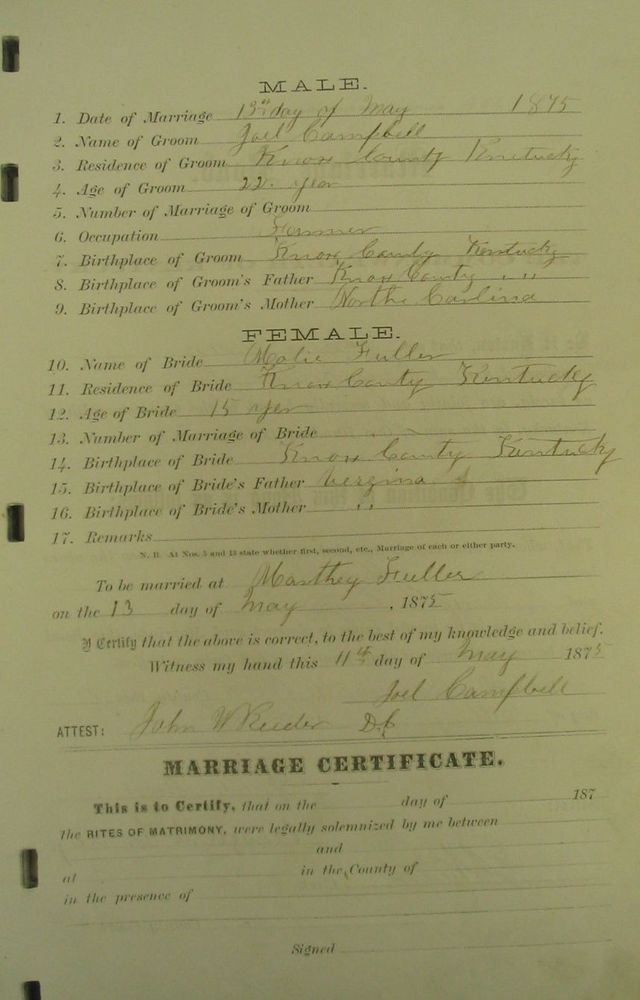 MALE.
1. Date of Marriage 13th day of May 1875
2. Name of Groom Joel Campbell
3. Residence of Groom Knox County Kentucky
4. Age of Groom 22 year
5. Number of Marriage of Groom
6. Occupation Farmer
7. Birthplace of Groom Knox County Kentucky
8. Birthplace of Groom's Father Knox County " "
9. Birthplace of Groom's Mother North Carlina
FEMALE.
10. Name of Bride Fuller
11. Residence of Bride Knox County Kentucky
12. Age of Bride 15 yer
13. Number of Marriage of Bride
14. Birthplace of Bride Knox County Kentucky
15. Birthplace of Bride's Father Vergina
16. Birthplace of Bride's Mother " "
17. Remarks
N. B. At Nos. 5 and 13 state whether first, second, etc., Marriage of each or either party.
To be married at Marthey Fuller
on the 13 day of May , 1875
I Certify that the above is correct, to the best of my knowledge and belief.
Witness my hand this 11th day of May 1875
Joel Campbell
ATTEST: John W Reeder D.C
MARRIAGE CERTIFICATE.
This is to Certify, that on the day of 187
the RITES OF MATRIMONY, were legally solemnized by me between
and
at in the County of
in the presence of
Signed